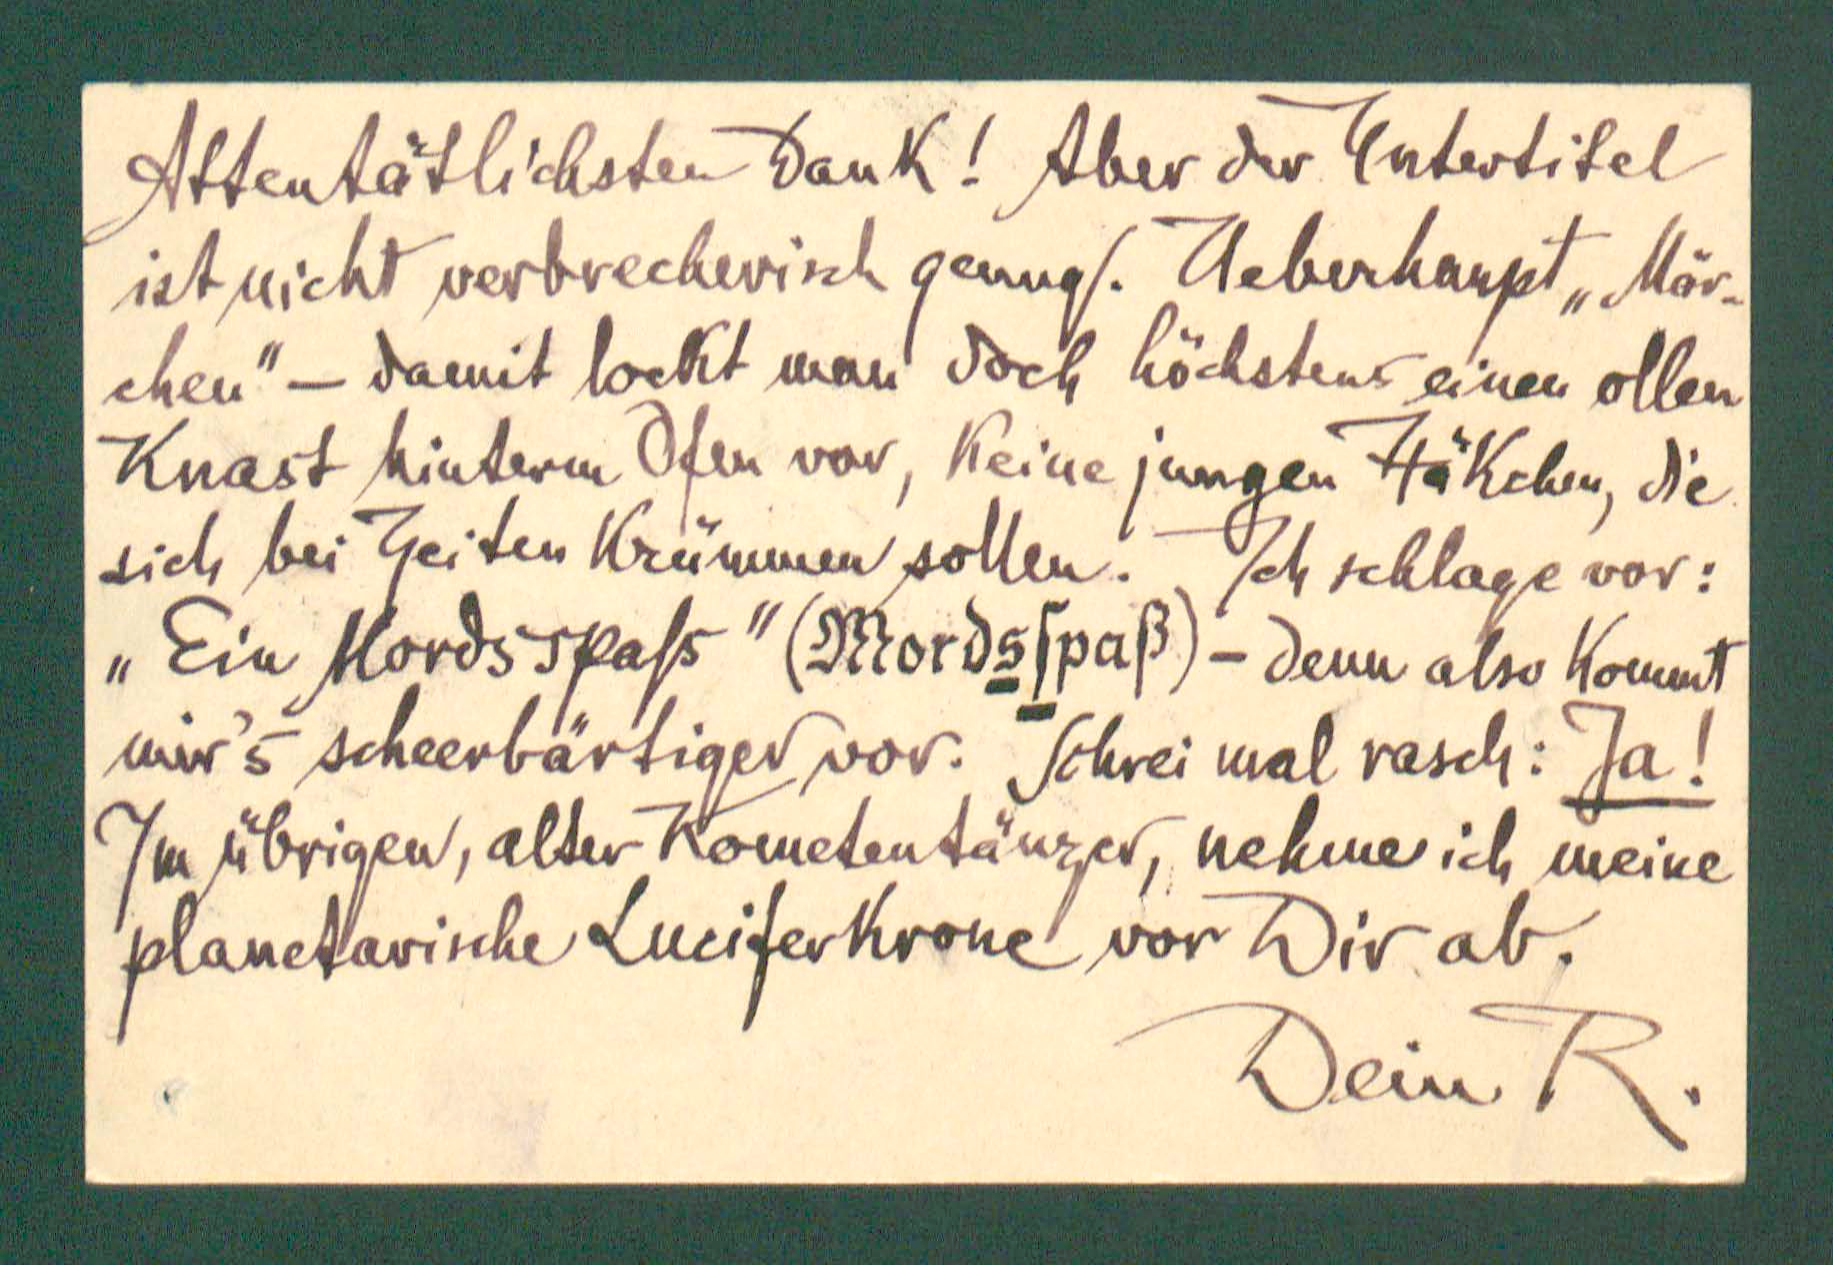 Attentätlichsten Dank! Aber der Untertitel
ist nicht verbrecherisch genug. Ueberhaupt „Mär-
chen“ – damit lockt man doch höchstens einen ollen
Knast hinterm Ofen vor, keine jungen Häkchen, die
sich bei Zeiten krümmen sollen. Ich schlage vor:
„Ein Mordsspaß“ (Mordsſpaß) – denn also kommt
mir's scheerbärtiger vor. Schrei mal rasch: Ja!
Im übrigen, alter Kometentänzer, nehme ich meine
planetarische Luciferkrone vor Dir ab.
Dein R.